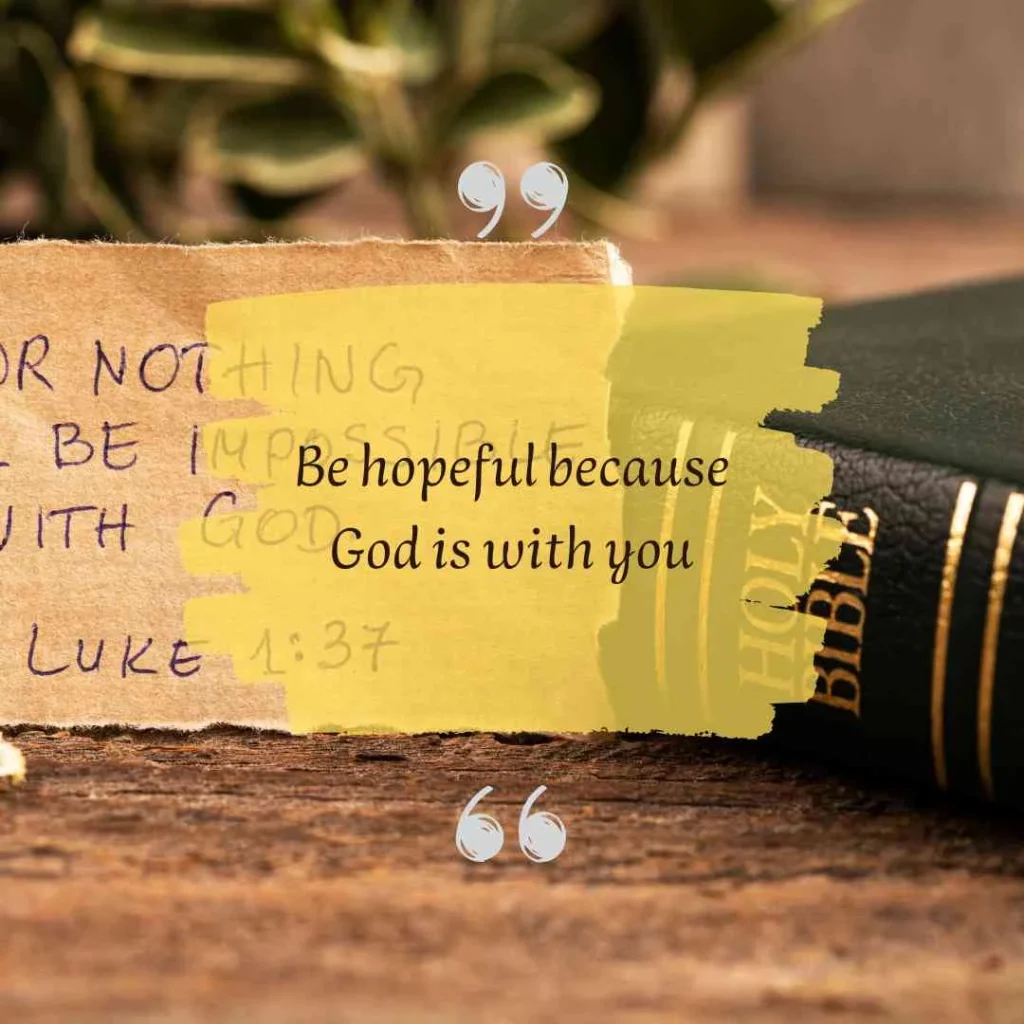 ”
OR NOTHING
L BE IMPOSSIBLE
WITH GOD
LUKE 1:37
Be hopeful because
God is with you
HOLY
BIBLE
“